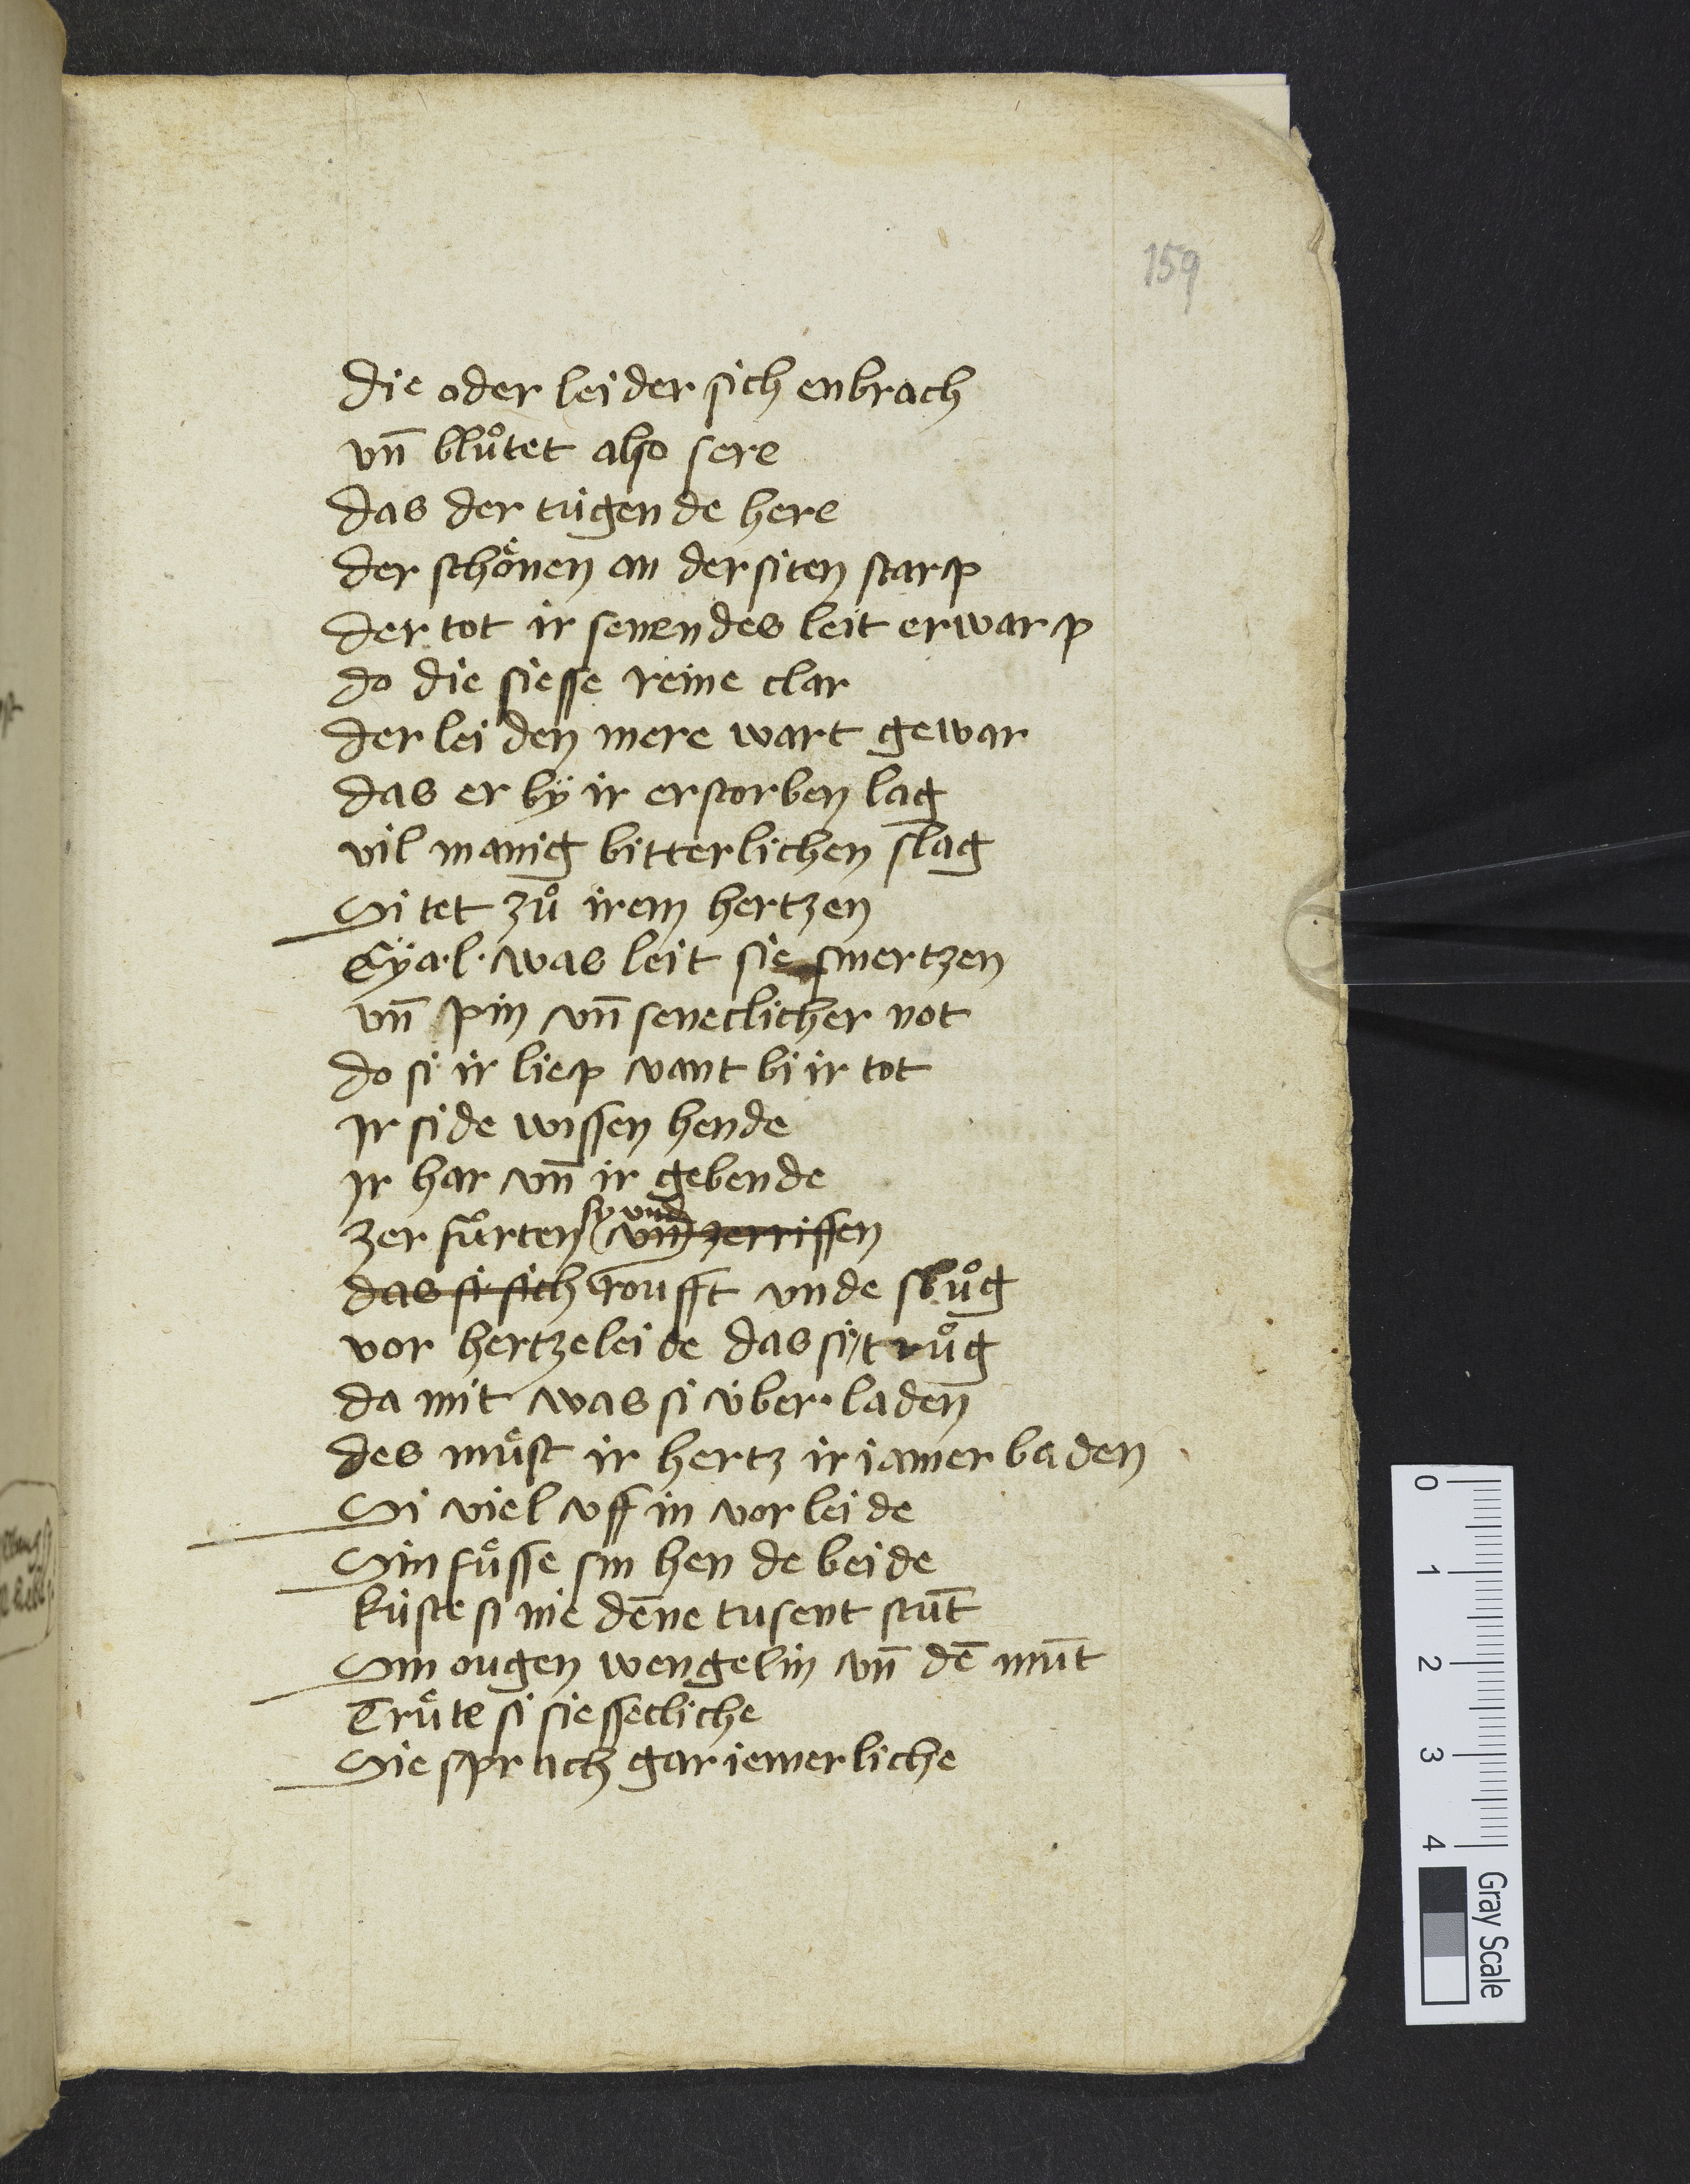 159
die oder leider sich enbrach
vn̄ blůtet also sere
das der tugende here
der schoͤnen an der siten starp
der tot ir senendes leit erwarp
do die siesse reine clar
der leiden mere wart gewar
das er bÿ ir erstorben lag
vil manig bitterlichen slag
Si tet zů irem hertzen
Eÿa·l· was leit sie smertzen
vn̄ pin vn̄ seneclicher not
do si ir liep vant bi ir tot
Ir side wissen hende
Ir har vn̄ ir gebende
sy vnd
zerfůrten vn̄ zerrissen
das si sich roufft vnde slůg
vor hertzeleide das si trůg
da mit was si v́ber·laden
des muͤst ir hertz ir iamer baden
Si viel vff in vor leide
Sin fuͤsse sin hende beide
kuste si me dēne tusent stūt
Sin ougen wengelin vn̄ dē mūt
Truͤte si siesseclichе
Sie sprach gar iemerliche
0
1
2
3
4
Gray Scale